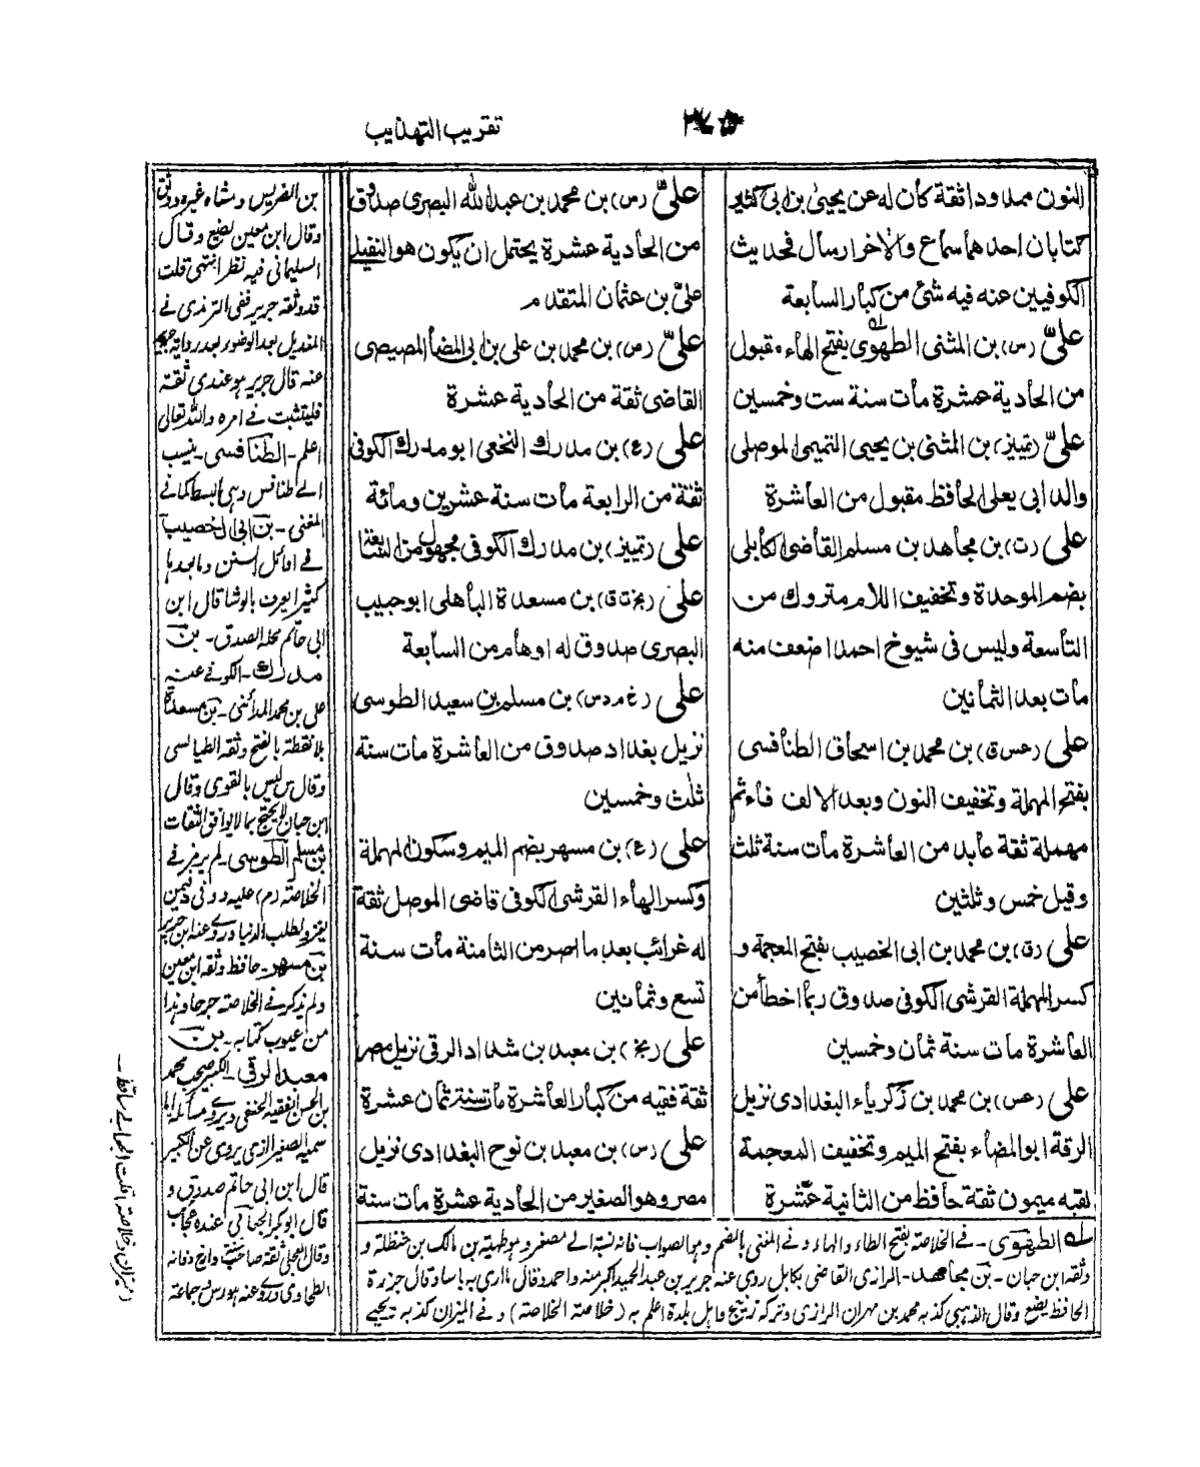 تقريب التهذيب
النون ممدودا ثقة كان له عن يحيى بن ابى كثير
كتابان احدهما سماع والاخر ارسال فحديث
الكوفيين عنه فيه شئ من كبار السابعة
علىّ (س) بن المثنى الطهوى بفتح الهاء مقبول
من الحادية عشرة مات سنة ست وخمسين
علىّ (تميز) بن المثنى بن يحيى التميمى الموصلى
والد ابى يعلى الحافظ مقبول من العاشرة
على (ت) بن مجاهد بن مسلم القاضى الكابلى
بضم الموحدة وتخفيف اللام متروك من
التاسعة وليس فى شيوخ احمد اضعف منه
مات بعد الثمانين
على (عس ق) بن محمد بن اسحاق الطنافسى
بفتح المهملة وتخفيف النون وبعد الالف فاء ثم
مهملة ثقة عابد من العاشرة مات سنة ثلث
وقيل خمس وثلثين
على (ق) بن محمد بن ابى الخصيب بفتح المعجمة و
كسر المهملة القرشى الكوفى صدوق ربما اخطأ من
العاشرة مات سنة ثمان وخمسين
على (عس) بن محمد بن زكرياء البغدادى نزيل
الرقة ابو المضاء بفتح الميم وتخفيف المعجمة
لقبه ميمون ثقة حافظ من الثانية عشرة
علىّ (س) بن محمد بن عبد الله البصرى صدوق
من الحادية عشرة يحتمل ان يكون هو النفيلى
علىّ بن عثمان المتقدم
علىّ (س) بن محمد بن على بن ابى المضاء المصيصى
القاضى ثقة من الحادية عشرة
على (ع) بن مدرك النخعى ابو مدرك الكوفى
ثقة من الرابعة مات سنة عشرين ومائة
على (تميز) بن مدرك الكوفى مجهول من السابعة
على (بخ ت ق) بن مسعدة الباهلى ابو حبيب
البصرى صدوق له اوهام من السابعة
على (خ م د س) بن مسلم بن سعيد الطوسى
نزيل بغداد صدوق من العاشرة مات سنة
ثلث وخمسين
على (ع) بن مسهر بضم الميم وسكون المهملة
وكسر الهاء القرشى الكوفى قاضى الموصل ثقة
له غرائب بعد ما اضر من الثامنة مات سنة
تسع وثمانين
على (بخ) بن معبد بن شداد الرقى نزيل مصر
ثقة فقيه من كبار العاشرة مات سنة ثمان عشرة
على (س) بن معبد بن نوح البغدادى نزيل
مصر وهو الصغير من الحادية عشرة مات سنة
بن الضريس ومشاه غيره ووثق
وقال ابن معين يضع وقال
السليمانى فيه نظر انتهى قلت
قد وثقه جرير ففى الترمذى فى
المنديل بعد الوضوء بعد رواية جرير
عنه قال جرير هو عندى ثقة
فليتثبت فى امره والله تعالى
اعلم - الطنافسى - ينسب
الى طنافس وهى البسط كما فى
المغنى - بن ابى الخصيب
فى اوائل السنن وما بعدها
كثيرا يعرف بالوشا قال ابن
ابى حاتم محله الصدق - بن
مدرك - الكوفى عنه
على بن محمد المدائنى - بن مسعدة
بلا نقطة بالفتح وثقه الطيالسى
وقال س ليس بالقوى وقال
ابن حبان لا يحتج بما لا يوافق الثقات
بن مسلم الطوسى - لم يرمز فى
الخلاصة (م) عليه
بن مسهر - حافظ وثقه ابن معين
ولم يذكر فى الخلاصة جرحا وهذا
من عيوب كتابه - بن
معبد الرقى -
بن الحسن الفقيه الحنفى
سمية الصغير الذى يروى عن الكبير
قال ابن ابى حاتم صدوق و
قال ابو بكر الجعابى عنده عجائب
وقال العجلى ثقة صاحب سنة
الطحاوى وروى عنه هو و س وجماعة
له الطهوى - فى الخلاصة بفتح الطاء والهاء وفى المغنى بالضم وهو الصواب فانه نسبة الى مصغر وهو طهية بن مالك بن حنظلة و
وثقه ابن حبان - بن مجاهد - الرازى القاضى بكابل روى عنه جرير بن عبد الحميد اكبر منه واحمد وقال ما ارى به باسا وقال جزرة
الحافظ يضع وقال الذهبى كذبه محمد بن مهران الرازى (خلاصة الخلاصة) وفى الميزان كذبه يحيى